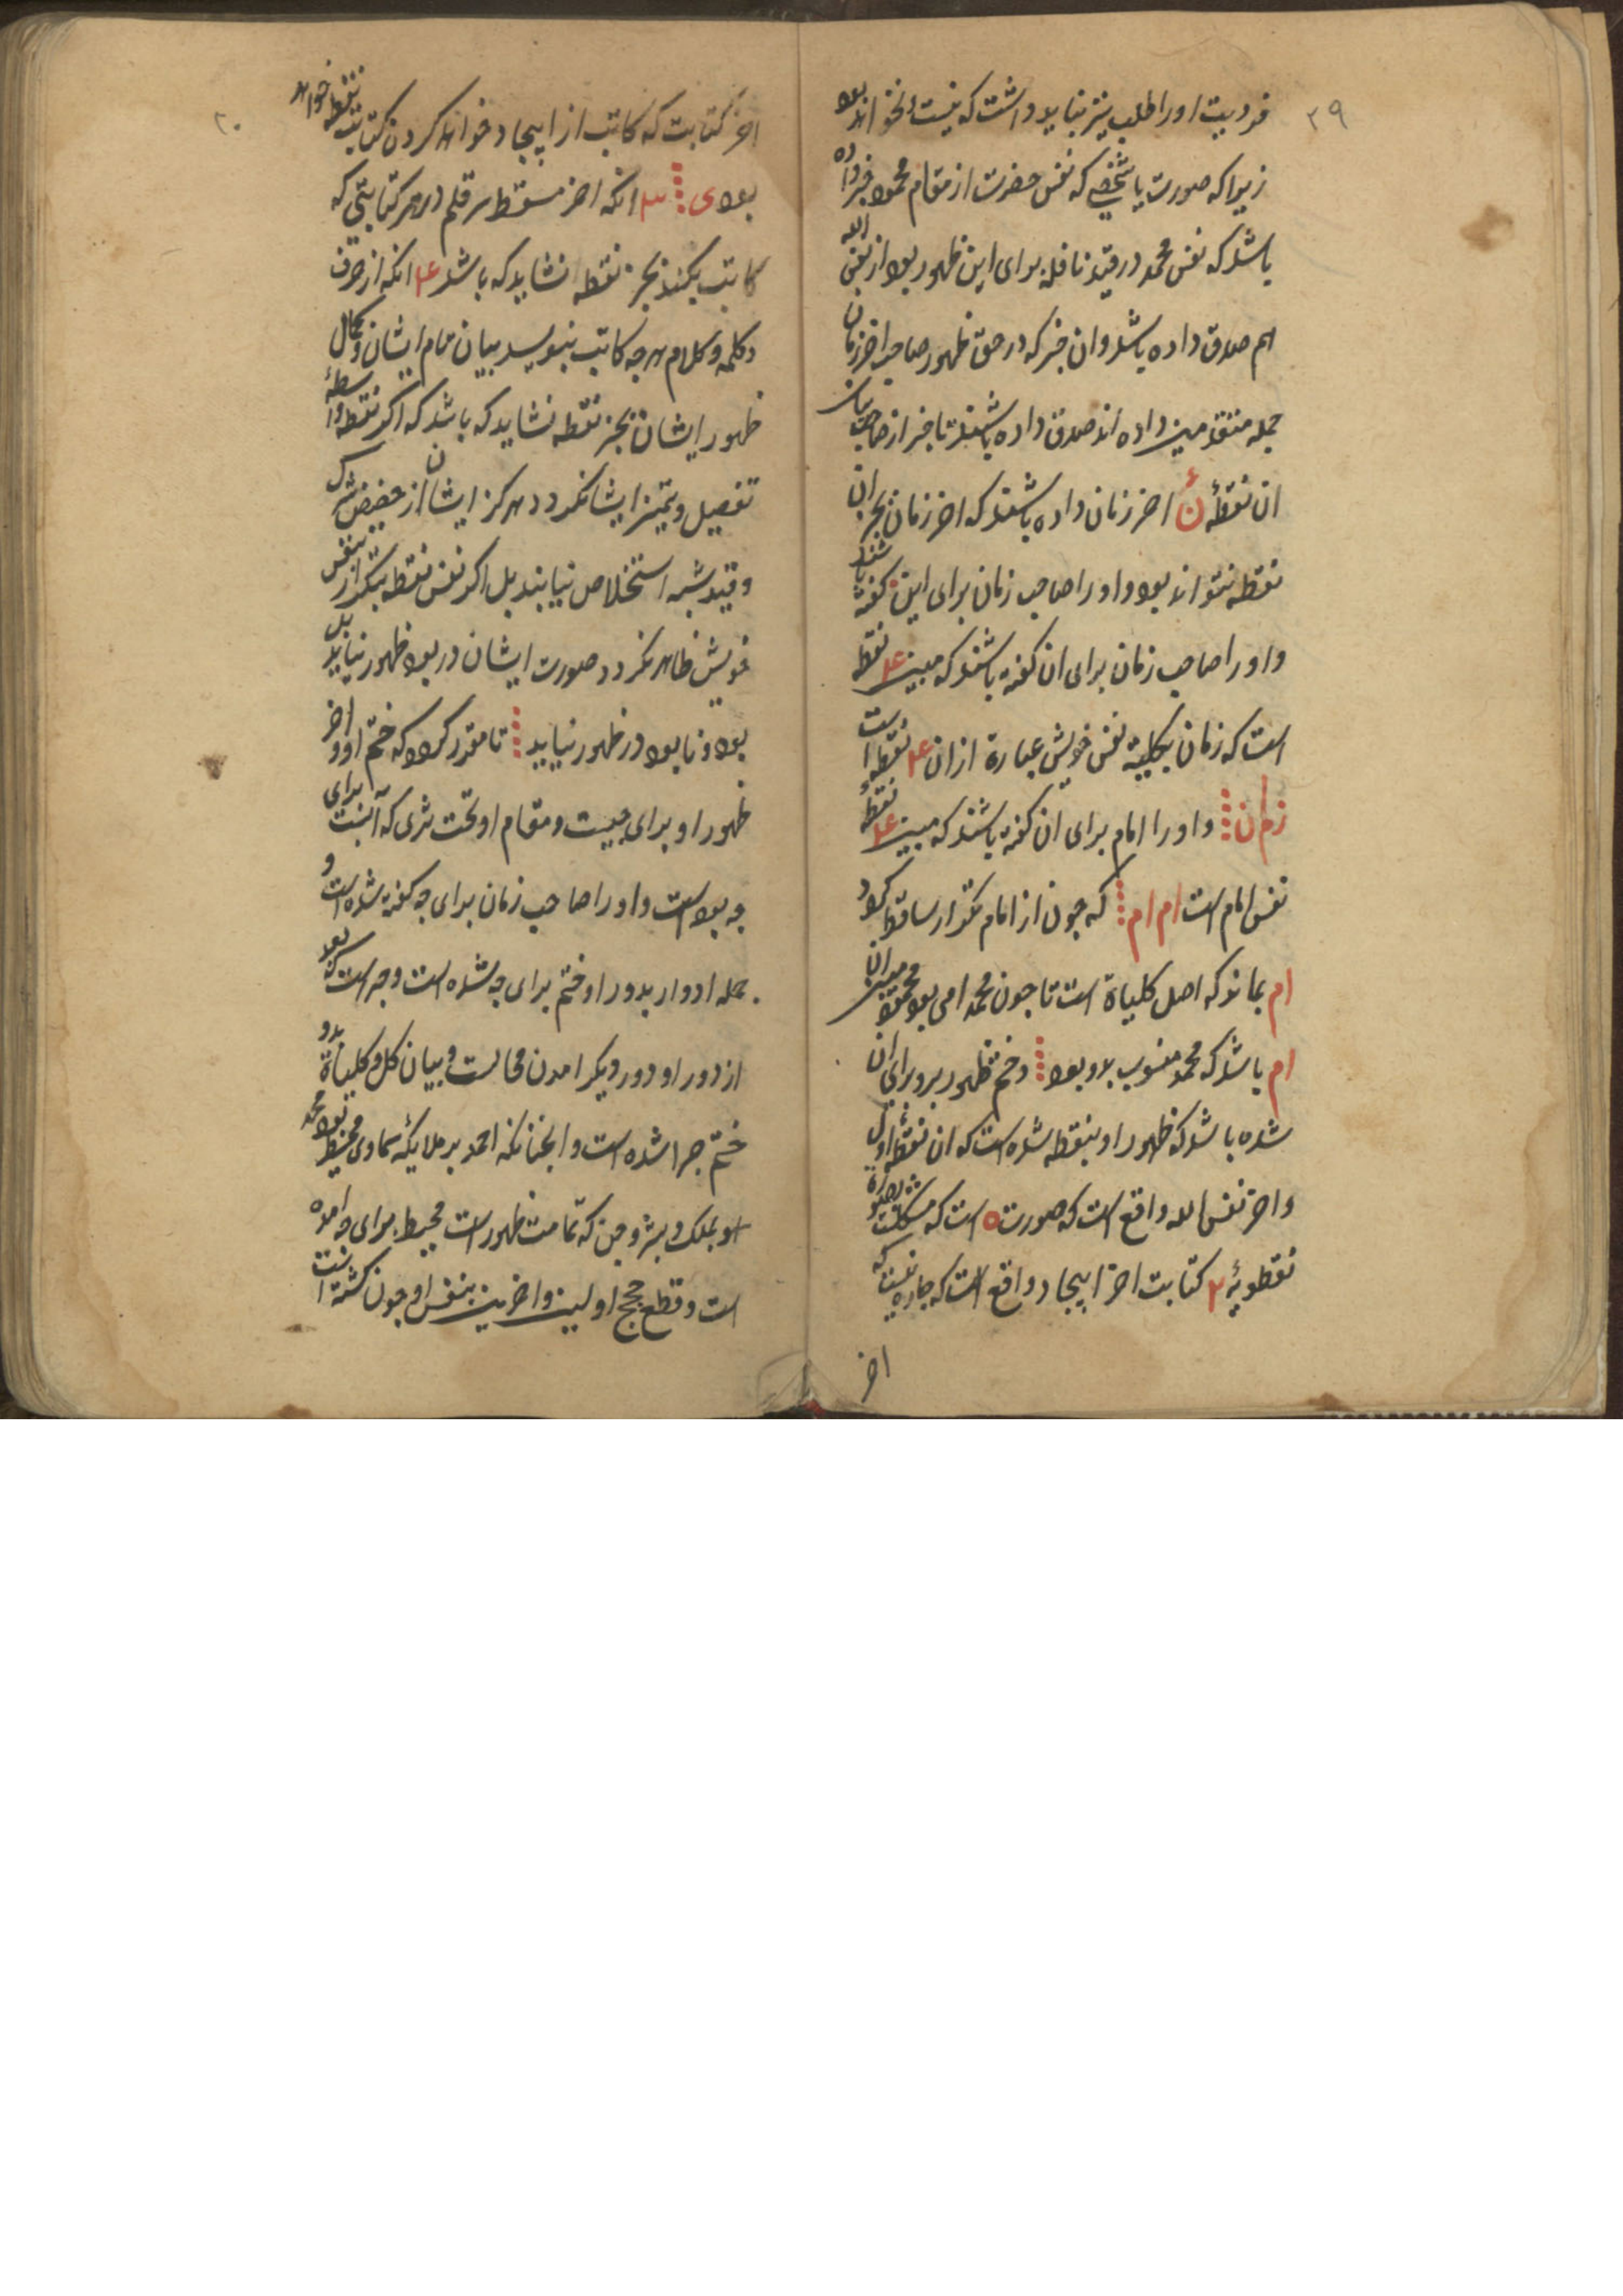 ۲۹
فردیت او را طلب نیز نباید داشت که نیست و نخواند بود
زیرا که صورت یا شخصی که نفس حضرت از مقام محمود خبر داده
باشد که نفس محمد در قید نافله برای این ظهور بود از نفس الله
هم صدق داده باشد و ان خبر که در حق ظهور صاحب اخر زمان
جمله متقدمین داده اند صدق داده باشند تا خبر از صاحب بیان
ان نقطهٔ نٔ اخر زمان داده باشند که اخر زمان بجز ان
نقطه نتواند بود و او را صاحب زمان برای این گفته باشند
و او را صاحب زمان برای ان گفته باشند که مبین ۴ نقطه
است که زمان بکلیهٔ نفس خویش عبارة از ان ۴ نقطه است
زم ان و او را امام برای ان گفته باشند که مبین ۴ نقطهٔ
نفس امام است ام ام که چون از امام تکرار ساقط کرد
ام بماند که اصل کلیاة است تا چون محمد امی بود محمود مبین ان
ام باشد که محمد منسوب بدو بود و ختم ظهور برو برای ان
شده باشد که ظهور او بنقطه شده است که ان نقطهٔ اول
و اخر نفس الله واقع است که صورت ه است که
نقطویهٔ ۲ کتابت اخر ایجاد واقع است که چاره نیست که
اخر
۲۰
اخر کتابت که کاتب از ایجاد خواهد کردن کتابت نقطه خواهد
بود ی ۳ انکه اخر مسقط سر قلم در هر کتابتی که
کاتب بکند بجز نقطه نشاید که باشد ۴ انکه از حرف
و کلمه و کلام هر چه کاتب بنویسد بیان تمام ایشان و کمال
ظهور ایشان بجز نقطه نشاید که باشد که اگر نقطه واسطهٔ
تفصیل و تمیز ایشان نکردد هرکز ایشان از حضیض شرک
و قید شبه استخلاص نیابند بل اکر نفس نقطه بتکرار نفس
خویش ظاهر نکردد صورت ایشان در بود ظهور نیاید بل
بود و نابود در ظهور نیاید تا مقرر کردد که ختم او و اخر
ظهور او برای چیست و مقام او تحت ثری که آنست برای
چه بوده است و او را صاحب زمان برای چه گفته شده است و
جمله ادوار بدور او ختم برای چه شده است و چه است که بعد
از دور او دور دیکر امدن محالست و بیان کل و کلیاة بدو
ختم چرا شده است و انچنانکه احمد بر ملایکهٔ سماوی محیط بود محمد
او بملک و بشر و جن که تمامت ظهور است محیط برای چه امده
است و قطع حجج اولین و اخرین بنفس او چون کشته است